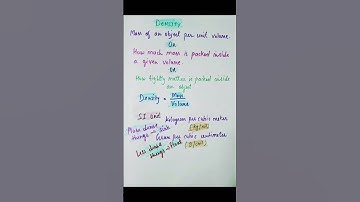 DENSITY
Mass of an object per unit volume.
OR
How much mass is packed inside
a given volume.
OR
How tightly matter is packed inside
an object
Density = Mass
Volume
S.I. unit kilogram per cubic meter
More dense
things → sink
(kg/m³)
Gram per cubic centimeter
Less dense
things → float
(g/cm³)